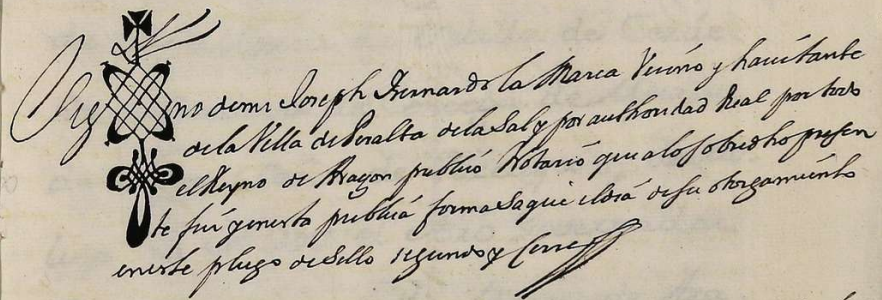 Sig no de mi Joseph Fernando la Marca Vecino y havitante
de la Villa de Peralta de la Sal y por authoridad Real por todo
el Reyno de Aragon publico Notario que a lo sobredho presen
te fui y en esta publica forma saque el dia de su otorgamiento
en este pliego de sello segundo y Cerre